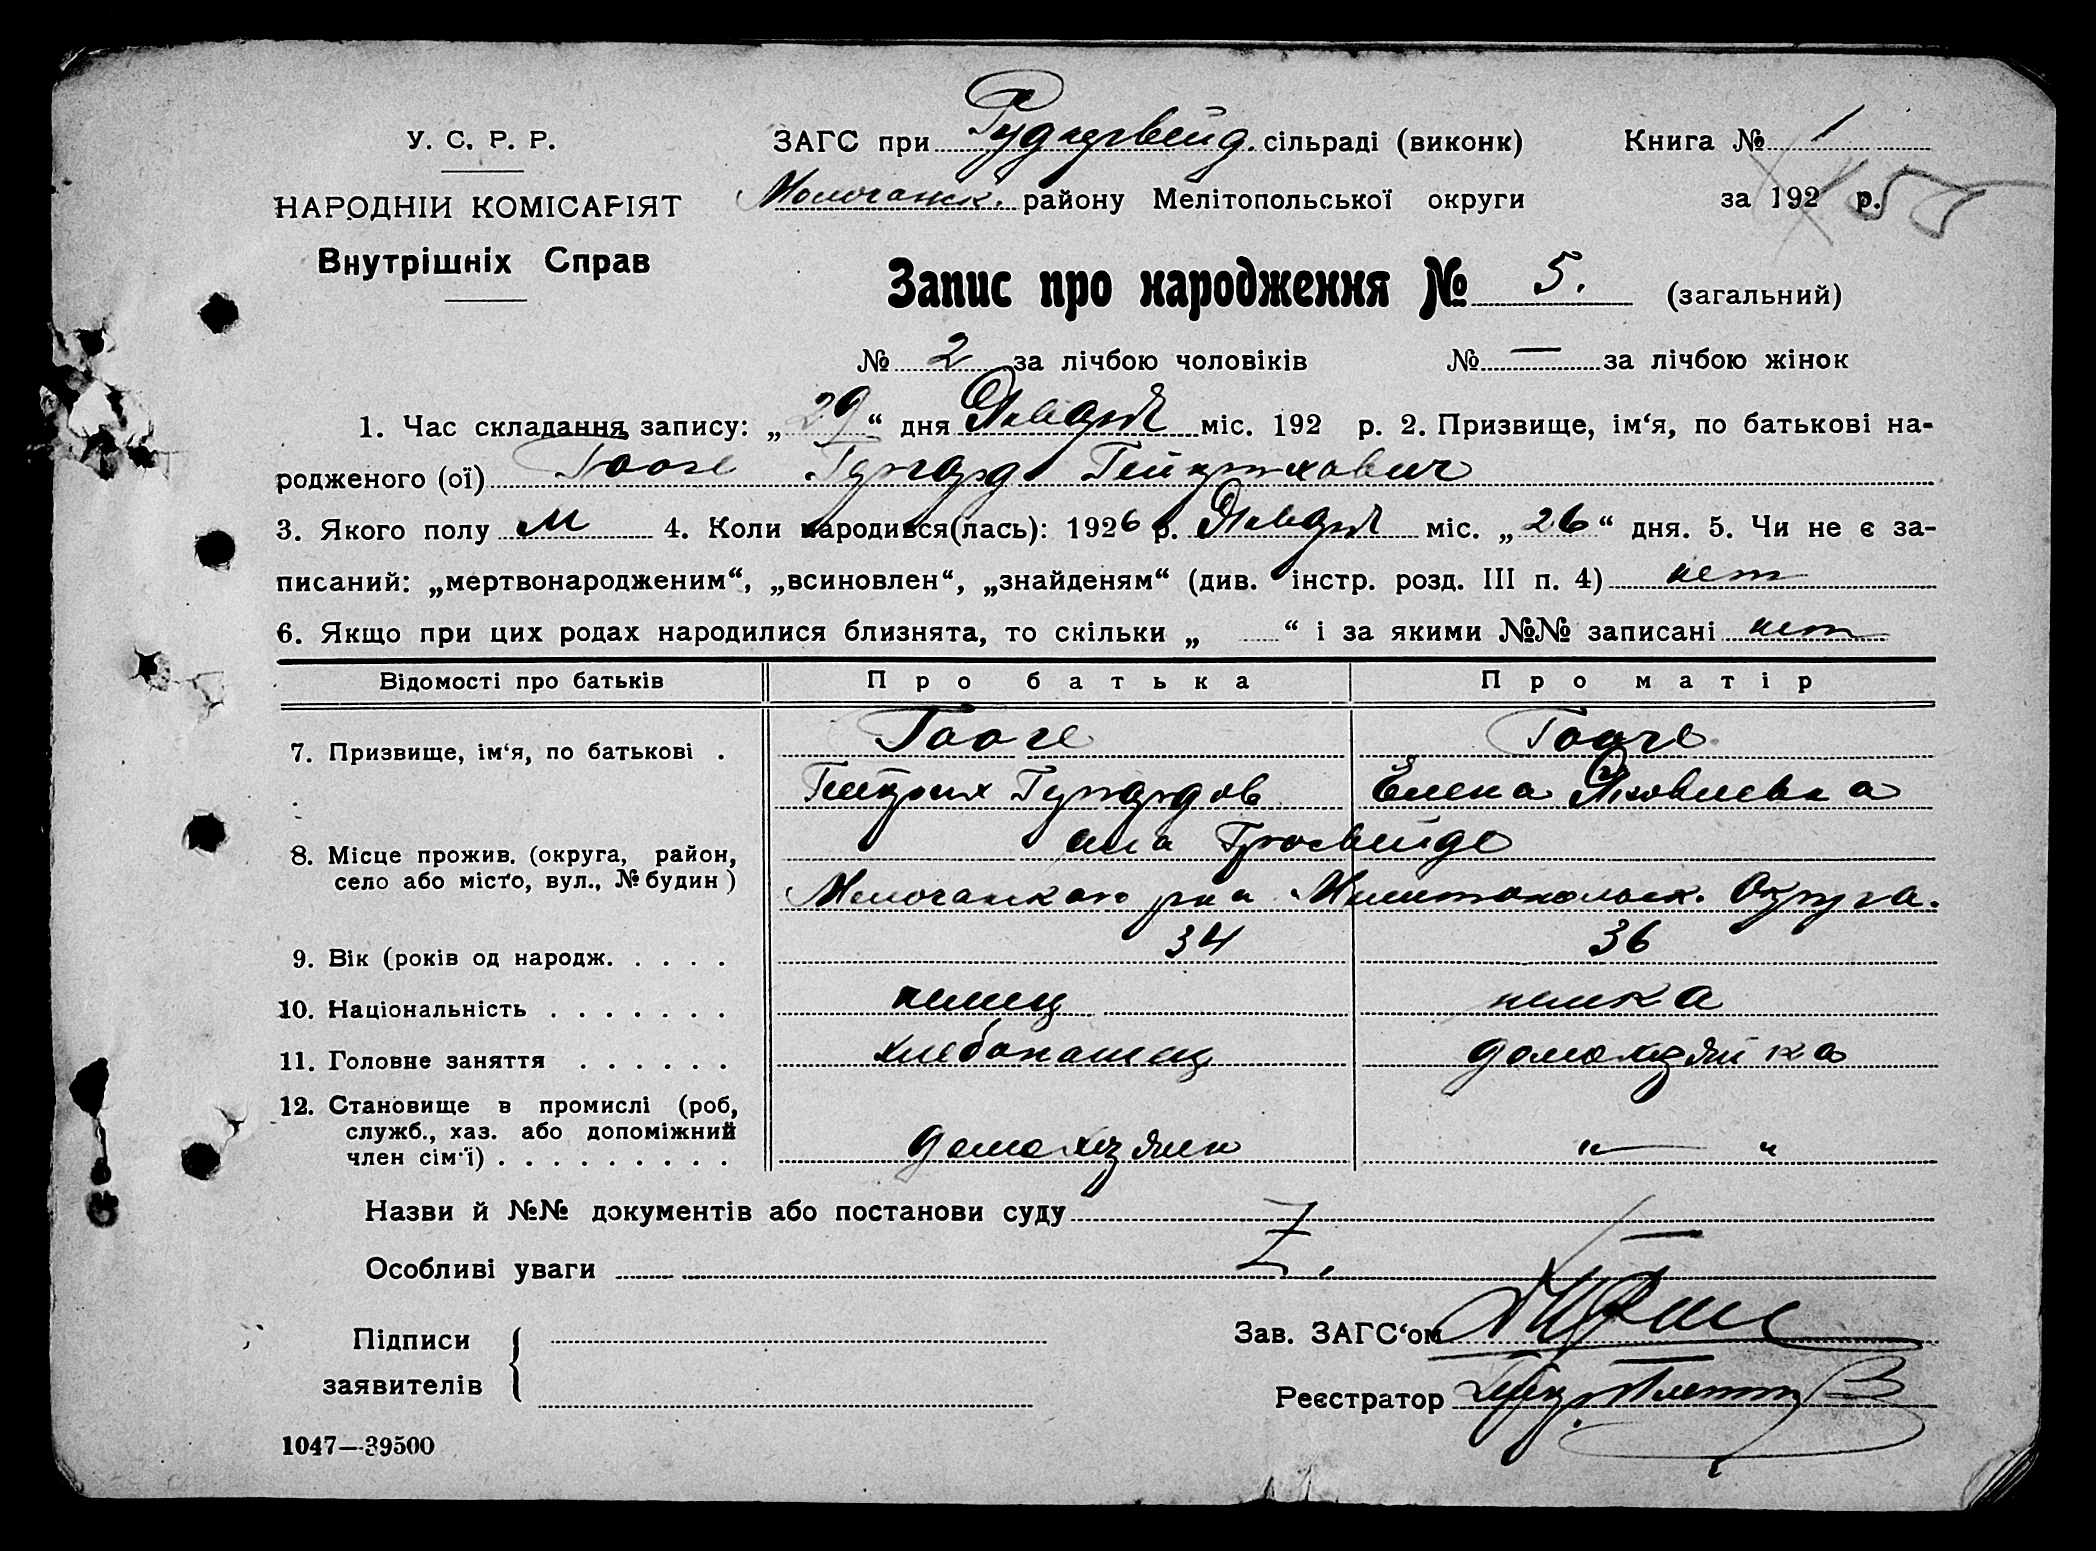 У. С. Р. Р.
НАРОДНІЙ КОМІСАРІЯТ
Внутрішніх Справ
ЗАГС при Руднервейд. сільраді (виконк) Книга № 1
Молочанск. району Мелітопольської округи за 192 р.
Запис про народження № 5. (загальний)
№ 2 за лічбою чоловіків № — за лічбою жінок
1. Час складання запису: „29“ дня Января міс. 192 р. 2. Призвище, ім‘я, по батькові на-
родженого (ої) Гооге Гергард Гейнрихович
3. Якого полу м 4. Коли народився(лась): 1926 р. Января міс. „26“ дня. 5. Чи не є за-
писаний: „мертвонародженим“, „всиновлен“, „знайденям“ (див. інстр. розд. III п. 4) нет
6. Якщо при цих родах народилися близнята, то скільки „ “ і за якими №№ записані нет
Відомості про батьків Про батька Про матір
7. Призвище, ім‘я, по батькові . Гооге Гооге
Гейнрих Гергардов Елена Яковлевна
8. Місце прожив. (округа, район,
село або місто, вул., № будин) села Гросвейде
Молочанского рна Мелитопольск. Округа.
9. Вік (років од народж. . . . . 34 36
10. Національність . . . . . . . немец немка
11. Головне заняття . . . . . . хлебопашец домохозяйка
12. Становище в промислі (роб,
служб., хаз. або допоміжний
член сім‘ї) . . . . . . . . . домохозяин "—"
Назви й №№ документів або постанови суду
Особливі уваги Z.
Підписи
заявителів
Зав. ЗАГС‘ом
Реєстратор
1047—39500